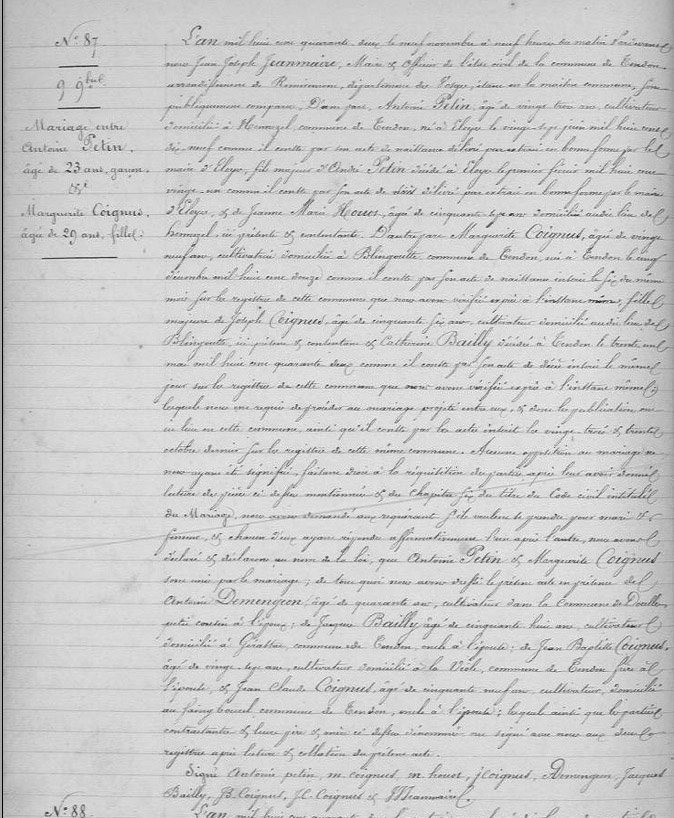 N° 87
9 9bre
Mariage entre
Antoine Petin,
âgé de 23 ans, garçon,
&
Marguerite Coignus,
âgée de 29 ans, fille.
L'an mil huit cent quarante deux le neuf novembre à neuf heures du matin devant
nous Jean Joseph Jeanmaire, Maire & Officier de l'état civil de la commune de Tendon,
arrondissement de Remiremont, département des Vosges, étant en la maison commune, sont
publiquement comparu, D'une part, Antoine Petin, âgé de vingt trois ans cultivateur
domicilié à commune de Tendon, né à Eloyes le vingt sept juin mil huit cent
dix neuf comme il conste par son acte de naissance délivré par extrait en bonne forme par le
maire d'Eloyes, fils majeur d'André Petin décédé à Eloyes le premier février mil huit cent
vingt un comme il conste par son acte de décès délivré par extrait en bonne forme par le maire
d'Eloyes, & de Jeanne Marie Houot, âgée de cinquante sept ans domiciliée au dit lieu de
ici présente & consentante. D'autre part Marguerite Coignus, âgée de vingt
neuf ans, cultivatrice domiciliée à Blingoutte commune de Tendon, née à Tendon le cinq
décembre mil huit cent douze comme il conste par son acte de naissance inscrit le six du même
mois sur le registre de cette commune que nous avons vérifié exprès à l'instant même, fille
majeure de Joseph Coignus, âgé de cinquante six ans, cultivateur domicilié au dit lieu de
Blingoutte, ici présent & consentant & Catherine Bailly décédée à Tendon le trente un
mai mil huit cent quarante deux comme il conste par son acte de décès inscrit le même
jour sur le registre de cette commune que nous avons vérifié exprès à l'instant même;
lesquels nous ont requis de procéder au mariage projeté entre eux, & dont la publication ont
eu lieu en cette commune, ainsi qu'il conste par les actes inscrits les vingt trois & trente
octobre dernier sur le registre de cette même commune. Aucune opposition au mariage ne
nous ayant été signifiée, faisant droit à la réquisition des parties après leur avoir donné
lecture des pièces ci dessus mentionnées & du chapitre six du titre du Code civil intitulé
du Mariage, nous avons demandé aux requérants s'ils veulent se prendre pour mari &
femme, & chacun d'eux ayant répondu affirmativement l'un après l'autre, nous avons
déclaré & déclarons au nom de la loi, que Antoine Petin & Marguerite Coignus
sont unis par le mariage; de tout quoi nous avons dressé le présent acte en présence de
Antoine Demengeon, âgé de quarante ans, cultivateur dans la commune de
petit cousin à l'époux; de Jacques Bailly âgé de cinquante huit ans, cultivateur
domicilié à Géraltré, commune de Tendon, oncle à l'épouse; de Jean Baptiste Coignus,
âgé de vingt sept ans, cultivateur domicilié à la commune de Tendon frère à
l'épouse, & Jean Claude Coignus, âgé de cinquante neuf ans, cultivateur, domicilié
au commune de Tendon, oncle à l'épouse; lesquels ainsi que les parties
contractantes & leurs père & mère ci dessus dénommés ont signé avec nous aux deux
registres après lecture & collation du présent acte.
Signé Antoine petin, m coignus, m houot, j Coignus, ADemengeon, Jacques
Bailly, JB. Coignus, J.C. Coignus & JJeanmaire.
N° 88
L'an mil huit cent quarante